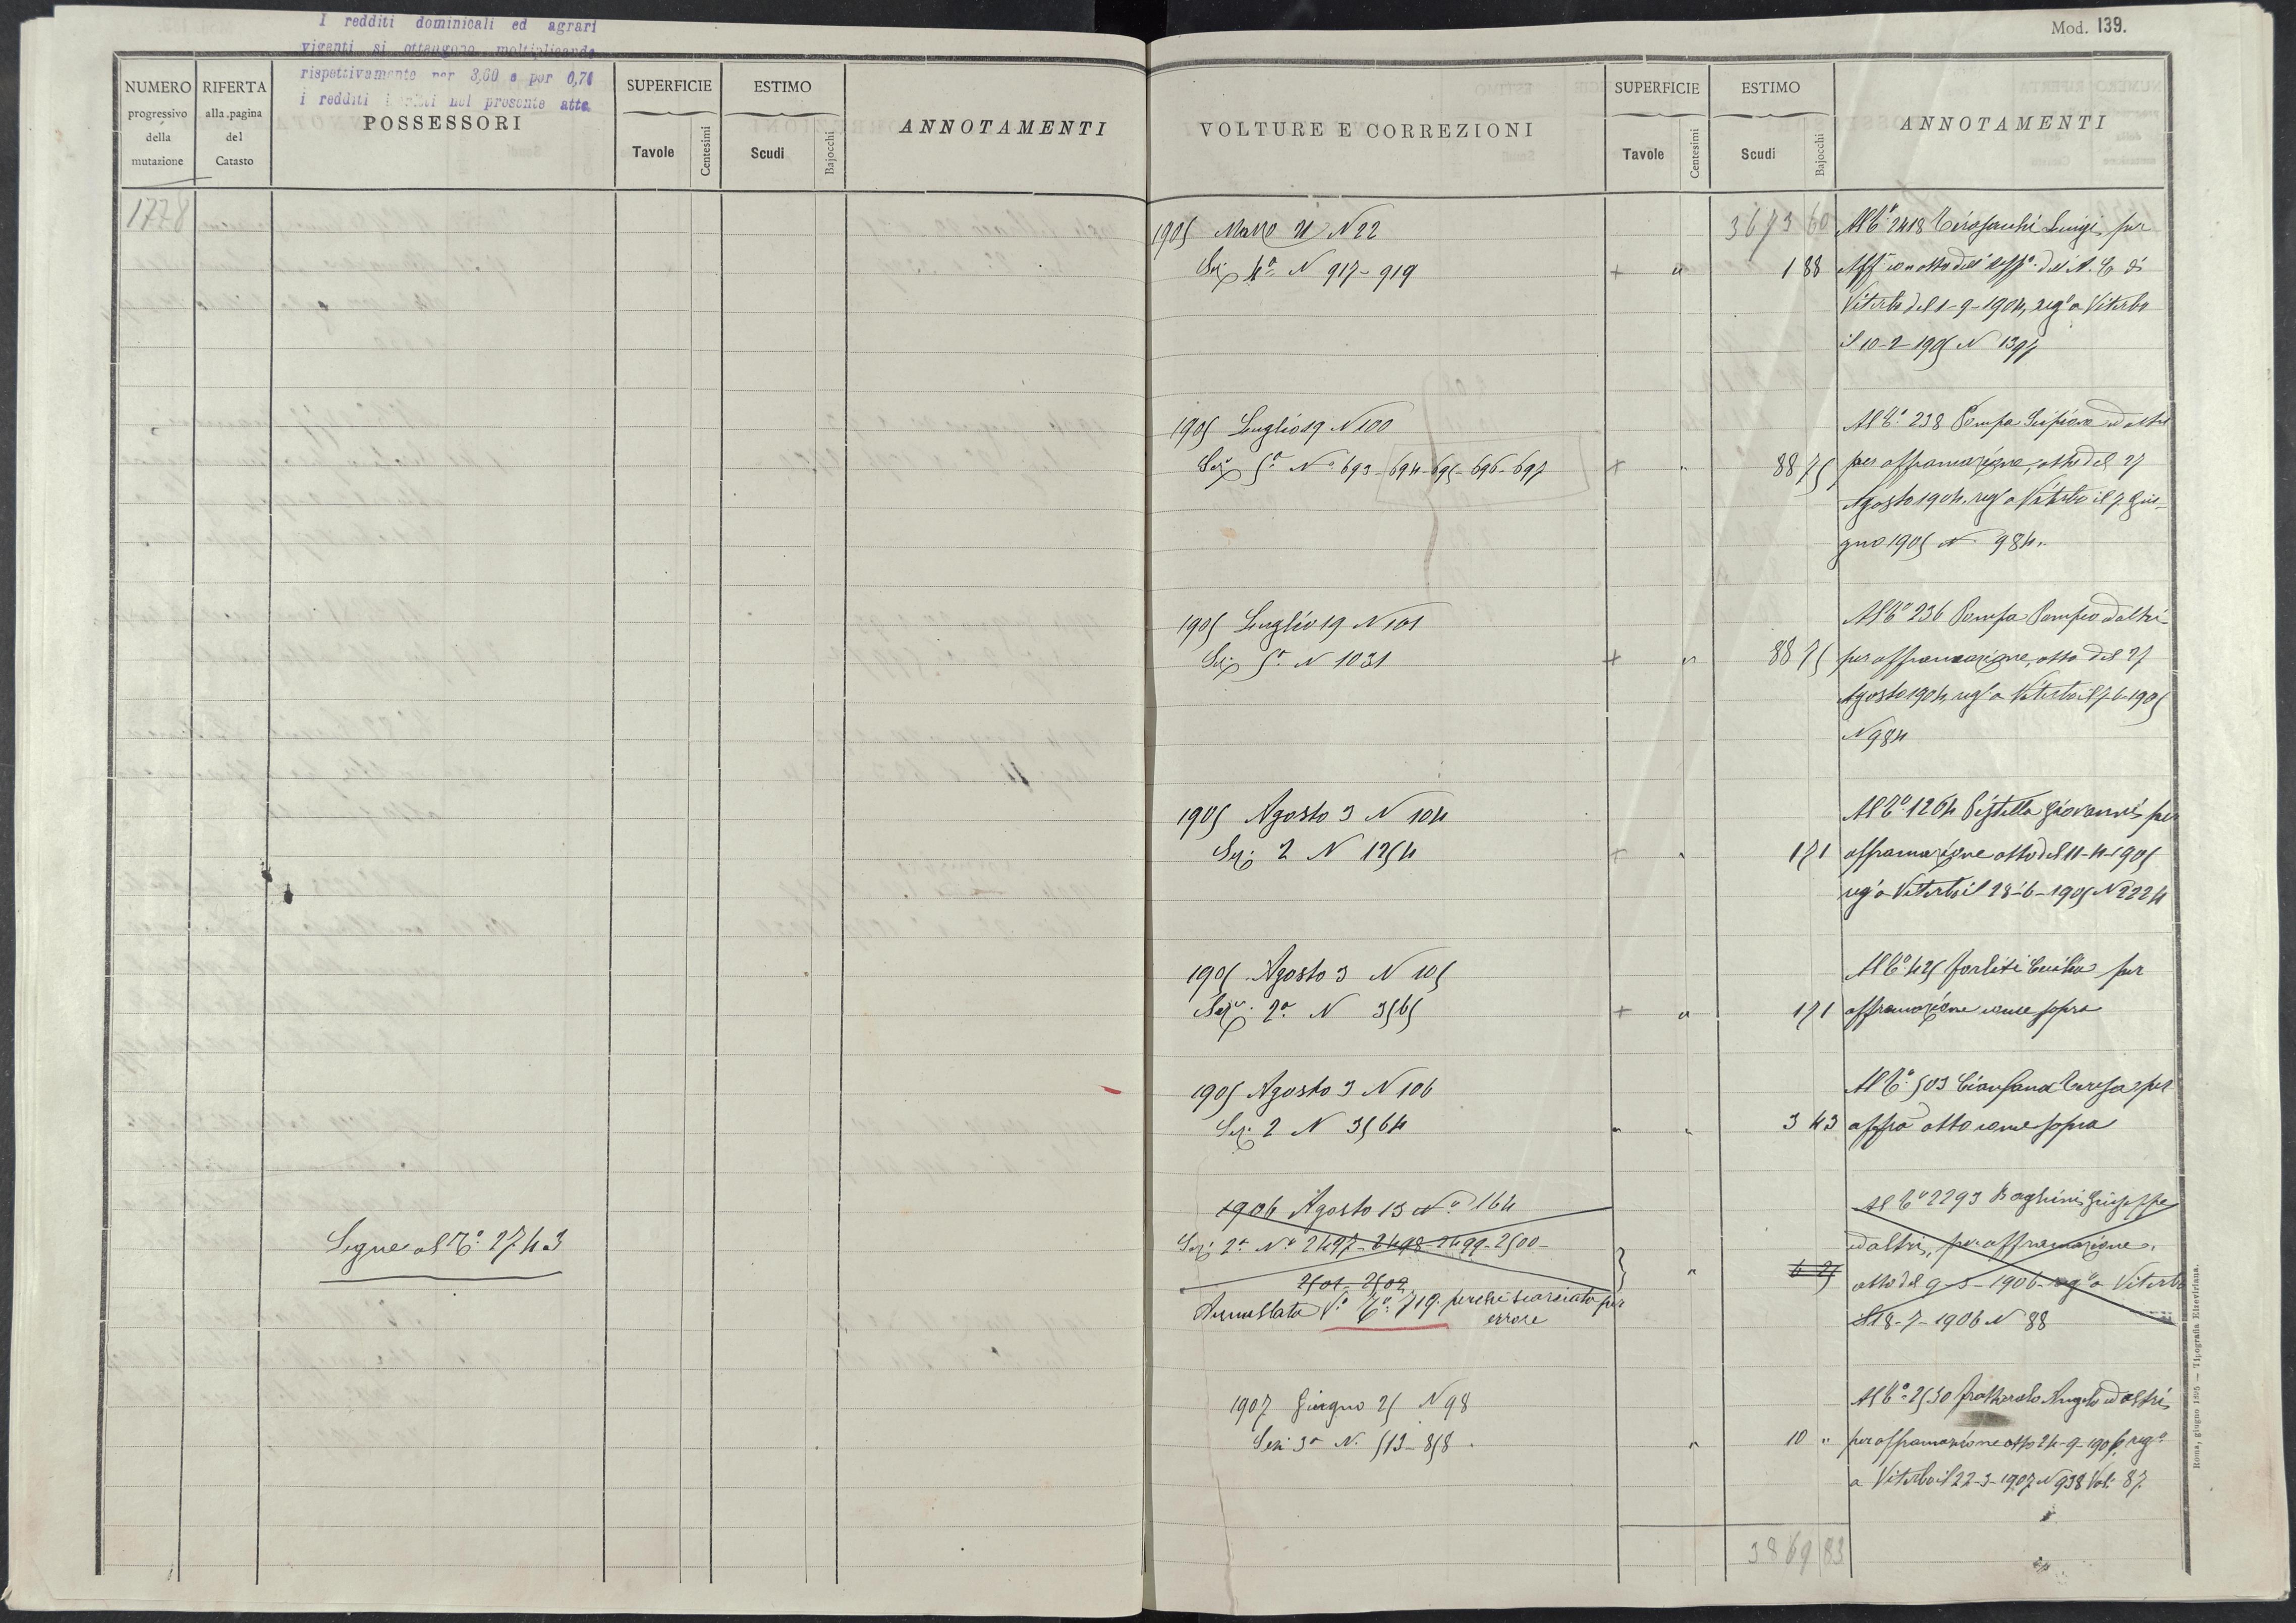 I redditi dominicali ed agrari
vigenti si ottengono moltiplicando
rispettivamente per 3,60 e per 0,70
i redditi iscritti nel presente atto.
Mod. 139.
NUMERO progressivo della mutazione
RIFERTA alla pagina del Catasto
POSSESSORI
SUPERFICIE
Tavole
Centesimi
ESTIMO
Scudi
Bajocchi
ANNOTAMENTI
1778
Segue al C.° 2743
VOLTURE E CORREZIONI
SUPERFICIE
Tavole
Centesimi
ESTIMO
Scudi
Bajocchi
ANNOTAMENTI
1905 Marzo 21 N 22 3673 60 Al C° 2418 Luigi per
Sez 4ª N 917-919 + " 1 88
Viterbo del 1-9-1904, reg° a Viterbo
il 10-2-1905 N 1397
1905 Luglio 19 N 100 Al C.° 238 Pompa Scipione ed altri
Sez 5ª N° 693-694-695-696-697 + " 88 75 per affrancazione, atto del 27
Agosto 1904, reg° a Viterbo il 7 Giu-
gno 1905 N 984.
1905 Luglio 19 N 101 Al C° 236 Pompa Pompeo ed altri
Sez 5ª N 1031 + " 88 75 per affrancazione, atto del 27
Agosto 1904, reg° a Viterbo il 7-6-1905
N 984
1905 Agosto 3 N 104 Al C° 1264 Pistella Giovanni per
Sez. 2 N 1254 + " 1 71 affrancazione atto del 11-4-1905
reg° a Viterbo il 28-6-1905 N 2224
1905 Agosto 3 N 105 Al C° 425 Forliti Cecilia per
Sez. 2ª N 3565 + " 1 71 affrancazione come sopra
1905 Agosto 3 N 106 Al C° 503 Teresa per
Sez. 2 N 3564 " " 3 43 affra atto come sopra
1906 Agosto 13 N° 164 Al C° 2293 Baghini Giuseppe
Sez. 2ª N° 2497-2498-2499-2500- ed altri, per affrancazione,
2501-2502 " 6 25 atto del 9-5-1906 reg° a Viterbo
Annullata V.° C.° 719 perchè scaricata per errore
il 18-7-1906 N 88
1907 Giugno 25 N 98 Al C° 2530 Angelo ed altri
Sez. 3ª N. 513-858 " 10 " per affrancazione atto 24-9-1906 reg°
a Viterbo il 22-3-1907 N 938 Vol. 87
3869 83
Roma, giugno 1895 — Tipografia Elzeviriana.